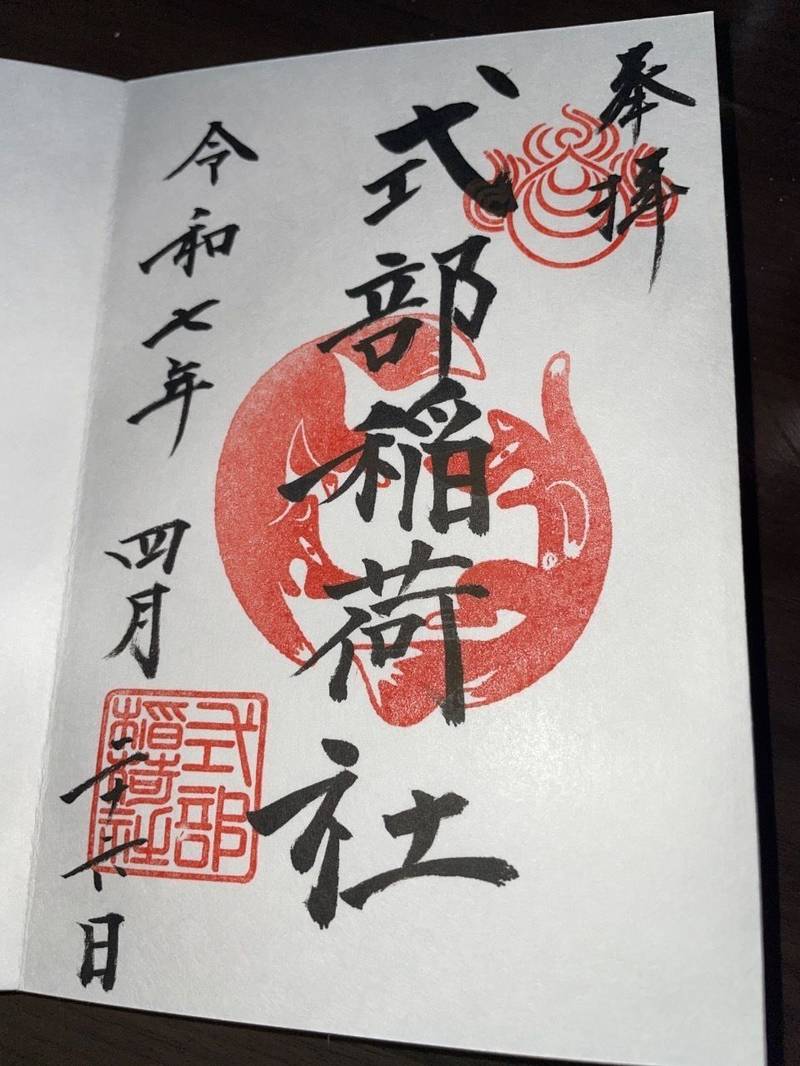 奉拝
式部稲荷社
令和七年 四月 二十六日
式部
稲荷社